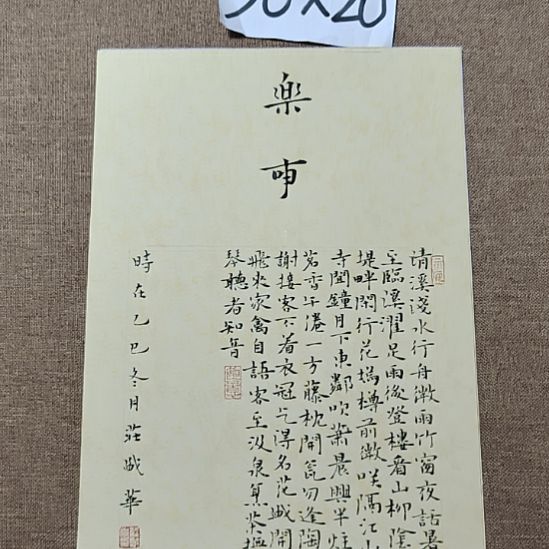 樂
事
清溪淺水行舟微雨竹窗夜話暑
至臨溪濯足雨後登樓看山柳陰
堤畔閑行花塢樽前微咲隔江山
寺聞鐘月下東鄰吹簫晨興半炷
茗香午倦一方藤枕開瓮勿逢陶
謝接客不着衣冠乞得名花盛開
飛來家禽自語客至汲泉烹茶撫
琴聽者知音
時在乙巳冬月莊華